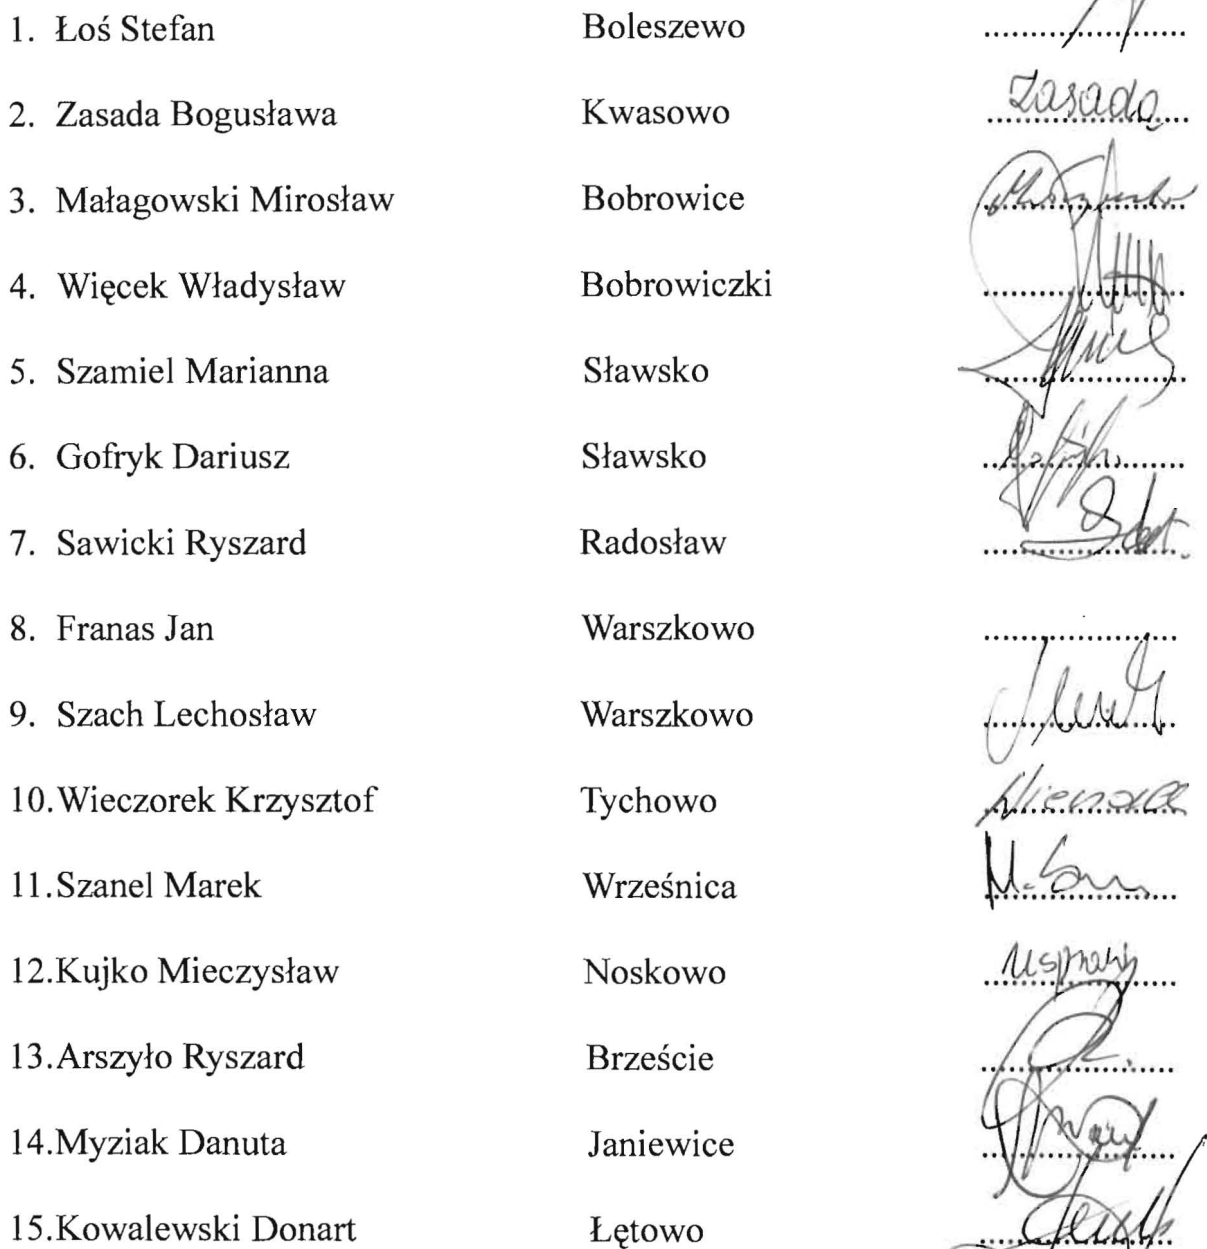 1. Łoś Stefan Boleszewo ....................
2. Zasada Bogusława Kwasowo Zasada
3. Małagowski Mirosław Bobrowice ....................
4. Więcek Władysław Bobrowiczki ....................
5. Szamiel Marianna Sławsko ....................
6. Gofryk Dariusz Sławsko ....................
7. Sawicki Ryszard Radosław ....................
8. Franas Jan Warszkowo ....................
9. Szach Lechosław Warszkowo ....................
10.Wieczorek Krzysztof Tychowo ....................
11.Szanel Marek Wrześnica ....................
12.Kujko Mieczysław Noskowo ....................
13.Arszyło Ryszard Brzeście ....................
14.Myziak Danuta Janiewice ....................
15.Kowalewski Donart Łętowo ....................